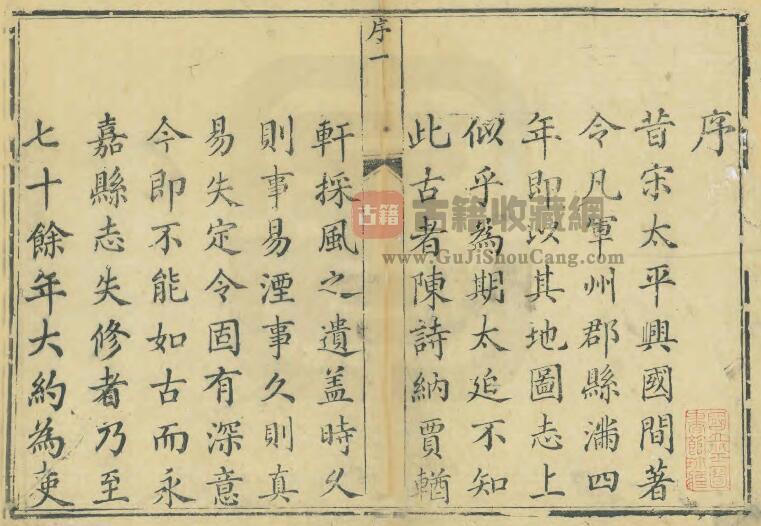 序
昔宋太平興國間著
令凡軍州郡縣滿四
年即以其地圖志上
似乎為期太延不知
此古者陳詩納賈輶
序一
軒採風之遺盖時久
則事易湮事久則真
易失定令固有深意
今即不能如古而永
嘉縣志失修者乃至
七十餘年大約為吏
古籍
古籍收藏網
www.GuJiShouCang.com